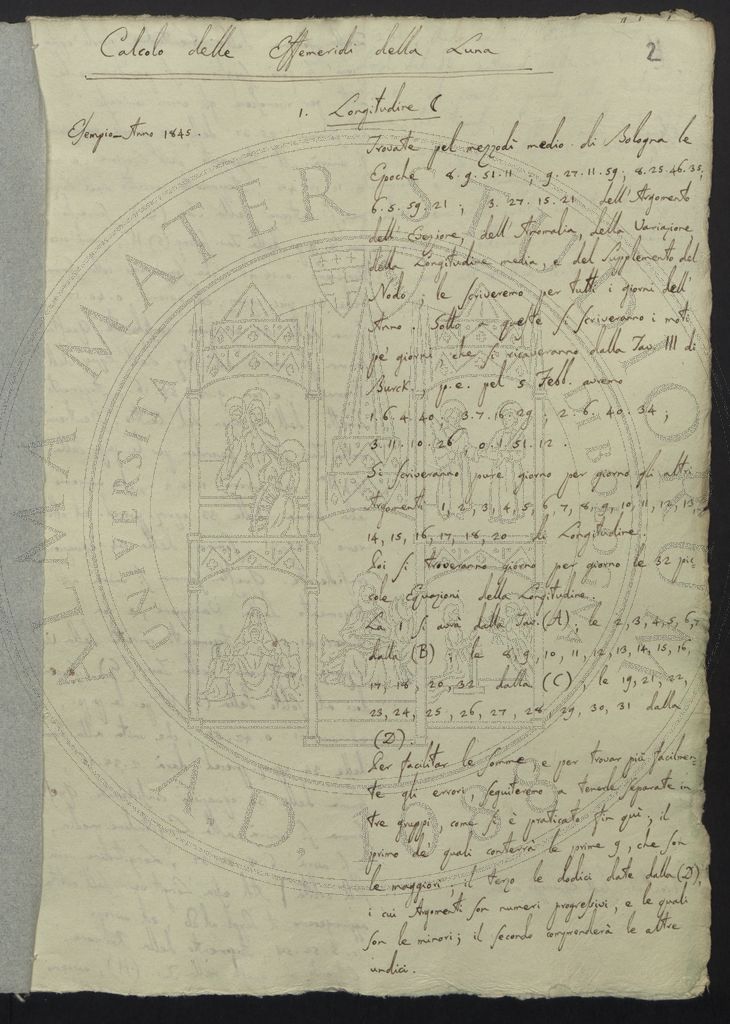 Calcolo delle Effemeridi della Luna
2
1. Longitudine ☾
Esempio_Anno 1845.
Trovate pel mezzodì medio di Bologna le
Epoche 8.9.51.11 ; 9.27.11.59 ; 8.25.46.35;
6.5.59.21 ; 3.27.15.21 dell'Argomento
dell'Evezione, dell'Anomalia, della Variazione
della Longitudine media, e del Supplemento del
Nodo, le scriveremo per tutti i giorni dell'
Anno. Sotto a queste si scriveranno i moti
pe' giorni, che si ricaveranno dalla Tav. III di
Burck., p.e. pel 5 Febb. avremo
1.6.4.40; 3.7.16.29 ; 2.6.40.34 ;
3.11.10.26, 0.1.51.12.
Si scriveranno pure giorno per giorno gli altri
Argomenti 1, 2, 3, 4, 5, 6, 7, 8, 9, 10, 11, 12, 13,
14, 15, 16, 17, 18, 20 di Longitudine.
Poi si troveranno giorno per giorno le 32 pic
cole Equazioni della Longitudine.
La 1 si avrà dalla Tav. (A); le 2, 3, 4, 5, 6, 7
dalla (B) ; le 8, 9, 10, 11, 12, 13, 14, 15, 16,
17, 18, 20, 32 dalla (C), le 19, 21, 22,
23, 24, 25, 26, 27, 28, 29, 30, 31 dalla
(D).
Per facilitar le somme, e per trovar più facilmen-
te gli errori, seguiteremo a tenerle separate in
tre gruppi, come si è praticato fin qui; il
primo de' quali conterrà le prime 9, che son
le maggiori; il terzo le dodici date dalla (D),
i cui Argomenti son numeri progressivi, e le quali
son le minori; il secondo comprenderà le altre
undici.
ALMA MATER STUDIORUM
UNIVERSITA
A.D. 1088